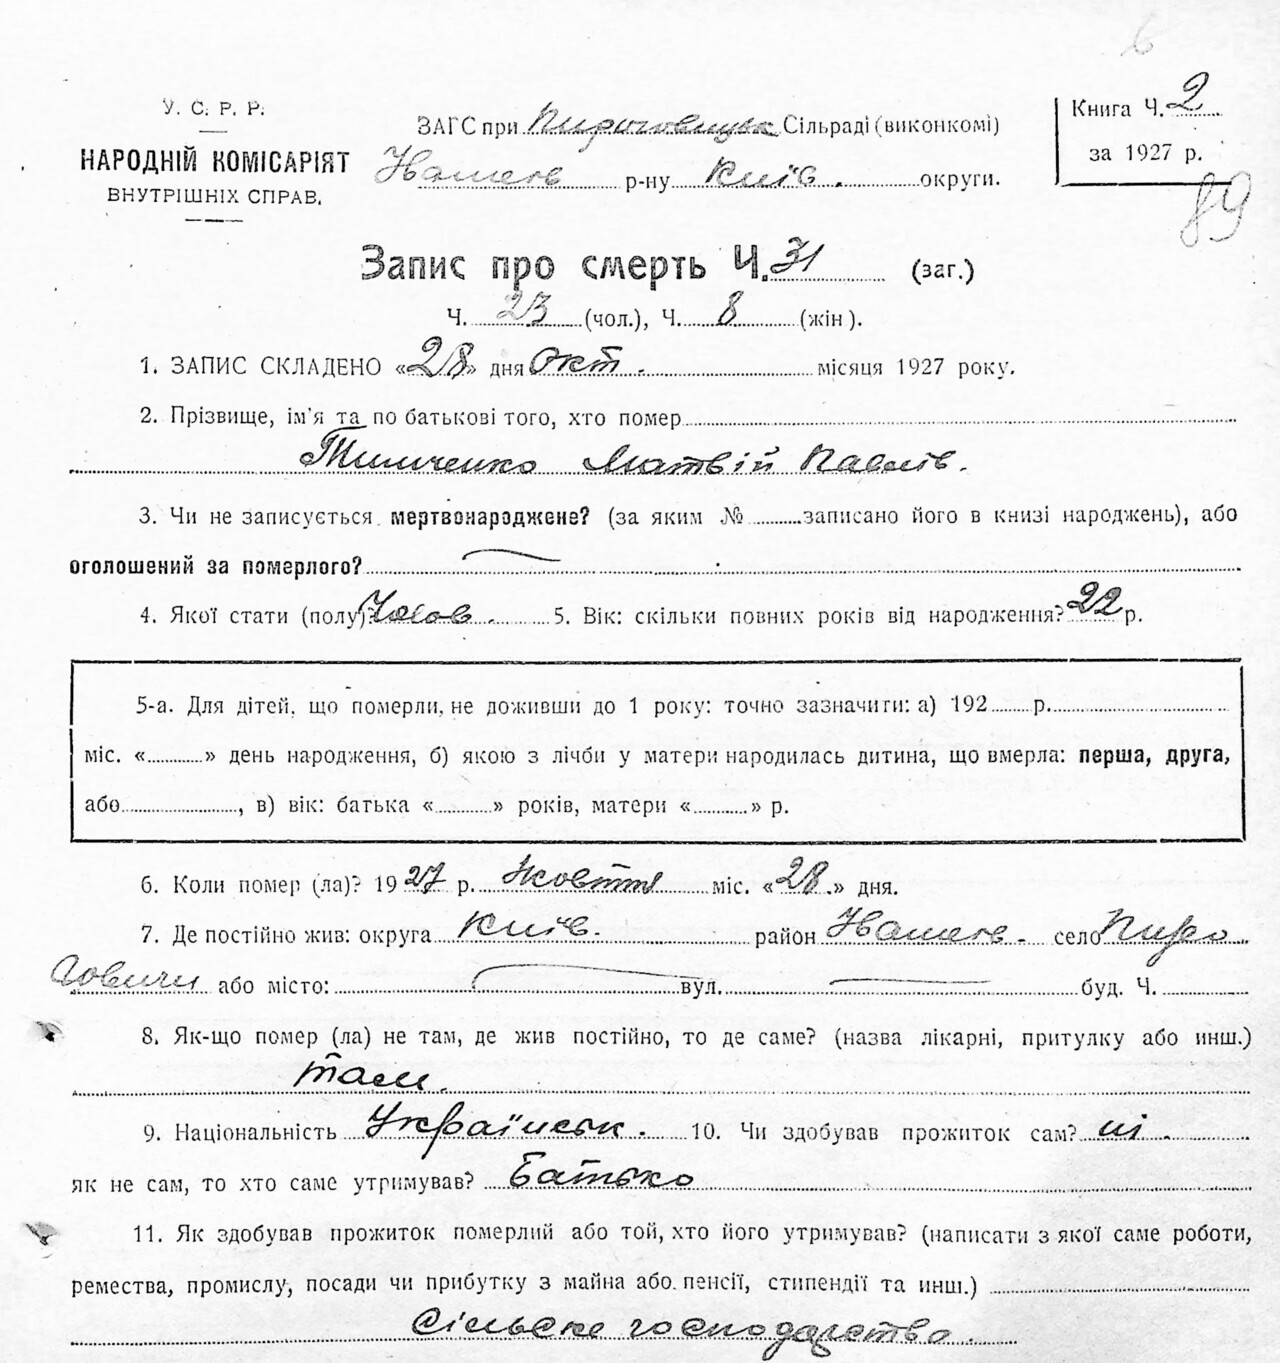 У. С. Р. Р.
НАРОДНІЙ КОМІСАРІЯТ
ВНУТРІШНІХ СПРАВ.
ЗАГС при Пироговицьк Сільраді (виконкомі)
р-ну Київ. округи.
Книга Ч. 2
за 1927 р.
89
Запис про смерть Ч. 31 (заг.)
Ч. 23 (чол.), Ч. 8 (жін).
1. ЗАПИС СКЛАДЕНО «28» дня Окт. місяця 1927 року.
2. Прізвище, ім'я та по батькові того, хто помер
Тимченко Матвій Павлів.
3. Чи не записується мертвонароджене? (за яким № записано його в книзі народжень), або
оголошений за померлого?
4. Якої стати (полу)? Чолов. 5. Вік: скільки повних років від народження? 22 р.
5-а. Для дітей, що померли, не доживши до 1 року: точно зазначити: а) 192 р.
міс. « » день народження, б) якою з лічби у матери народилась дитина, що вмерла: перша, друга,
або , в) вік: батька « » років, матери « » р.
6. Коли помер (ла)? 1927 р. Жовтня міс. «28.» дня.
7. Де постійно жив: округа Київ. район село Пиро
говичи або місто: вул. буд. Ч.
8. Як-що помер (ла) не там, де жив постійно, то де саме? (назва лікарні, притулку або инш.)
там.
9. Національність Українськ. 10. Чи здобував прожиток сам? ні.
як не сам, то хто саме утримував? Батько
11. Як здобував прожиток померлий або той, хто його утримував? (написати з якої саме роботи,
ремества, промислу, посади чи прибутку з майна або пенсії, стипендії та инш.)
Сільске господарство.